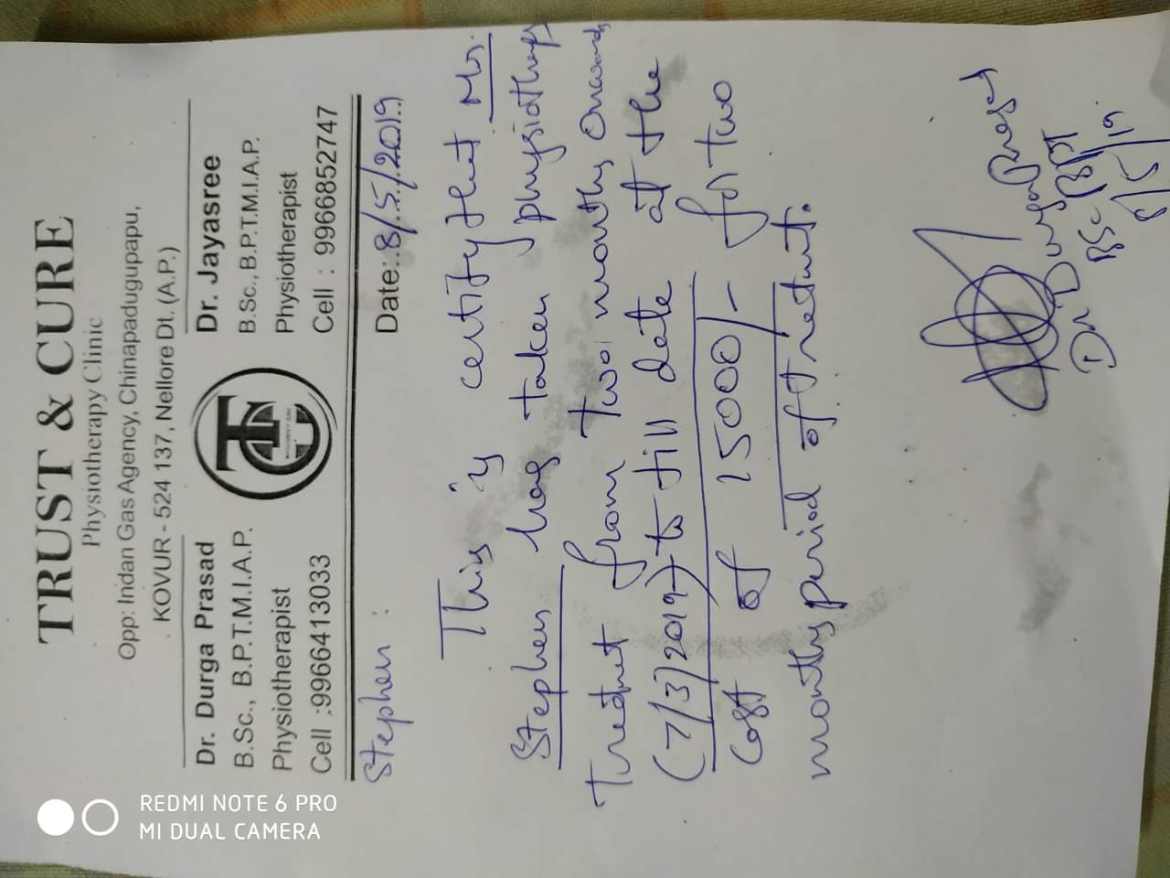 TRUST & CURE
Physiotherapy Clinic
Opp: Indan Gas Agency, Chinapadugupapu,
KOVUR - 524 137, Nellore Dt. (A.P.)
Dr. Durga Prasad
B.Sc., B.P.T.M.I.A.P.
Physiotherapist
Cell :9966413033
Dr. Jayasree
B.Sc., B.P.T.M.I.A.P.
Physiotherapist
Cell : 9966852747
Stephen : Date:.8/5/2019
This is certify that Mr.
Stephen has taken physiothapy
from two months
(7/3/2019) to till date at the
Cost of 15000/- for two
months period of
Dr. Durga
BSc BPT
8/5/19.
REDMI NOTE 6 PRO
MI DUAL CAMERA